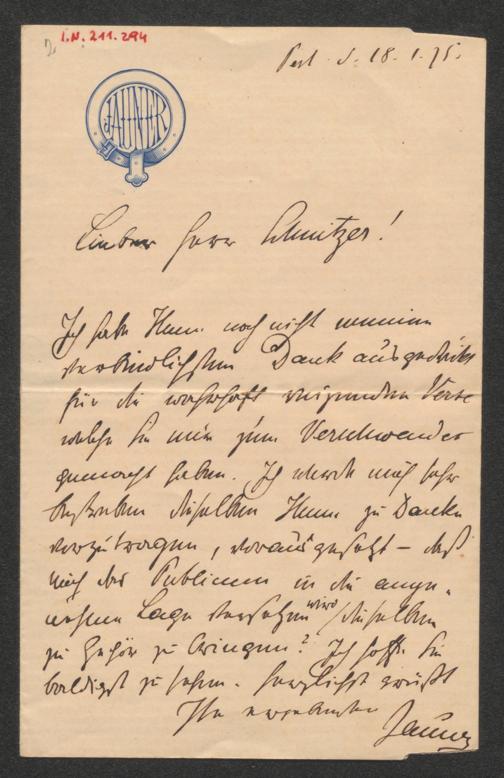 I.N. 211.294
Pest d. 18.1.75.
JAUNER
Lieber Herr Schnitzer!
Ich habe Ihnen noch nicht meinen
verbindlichsten Dank ausgedrückt
für die wahrhaft reizenden Verse
welche Sie mir zum Verschwender
gemacht haben. Ich werde mich sehr
bestreben dieselben Ihnen zu Danke
vorzutragen, vorausgesetzt – daß
mich das Publicum in die ange-
nehme Lage versetzen wird dieselben
zu Gehör zu bringen? Ich hoffe Sie
baldigst zu sehen. Herzlichst grüßt
Ihr ergebenster
Jauner